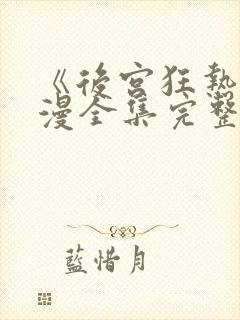 《後宮狂熱
漫全集完整
藍惜月